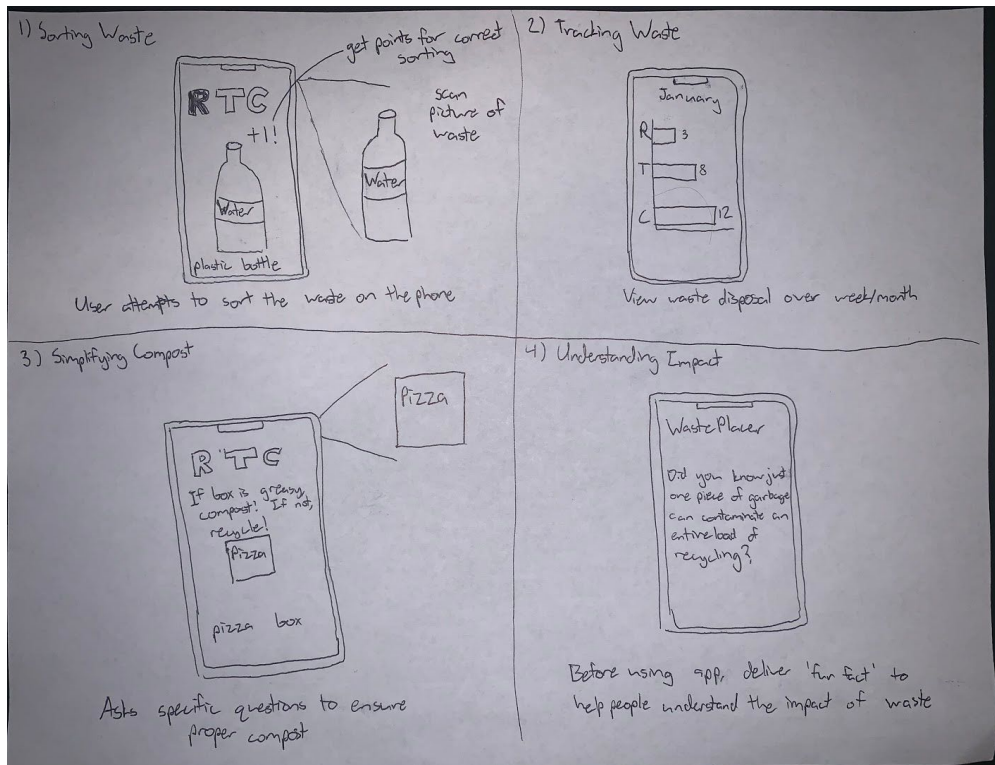 1) Sorting Waste
get points for correct
sorting
RTC
+1!
scan
picture of
waste
Water
Water
plastic bottle
User attempts to sort the waste on the phone
2) Tracking Waste
January
R 3
T 8
C 12
View waste disposal over week/month
3) Simplifying Compost
RTC
If box is greasy,
compost! If not,
recycle!
Pizza
pizza box
Pizza
Asks specific questions to ensure
proper compost
4) Understanding Impact
WastePlacer
Did you know just
one piece of garbage
can contaminate an
entire load of
recycling?
Before using app, deliver 'fun fact' to
help people understand the impact of waste